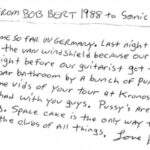 FROM BOB BERT 1988 to Sonic
ME SO FAR IN GERMANY. Last night
the van windshield because our
ight before our guitarist got
oar bathroom by a bunch of
me vids of your tour at Kronos
had with you guys. Pussy's are
. Space cake is the only way t
the clubs of all things. Love